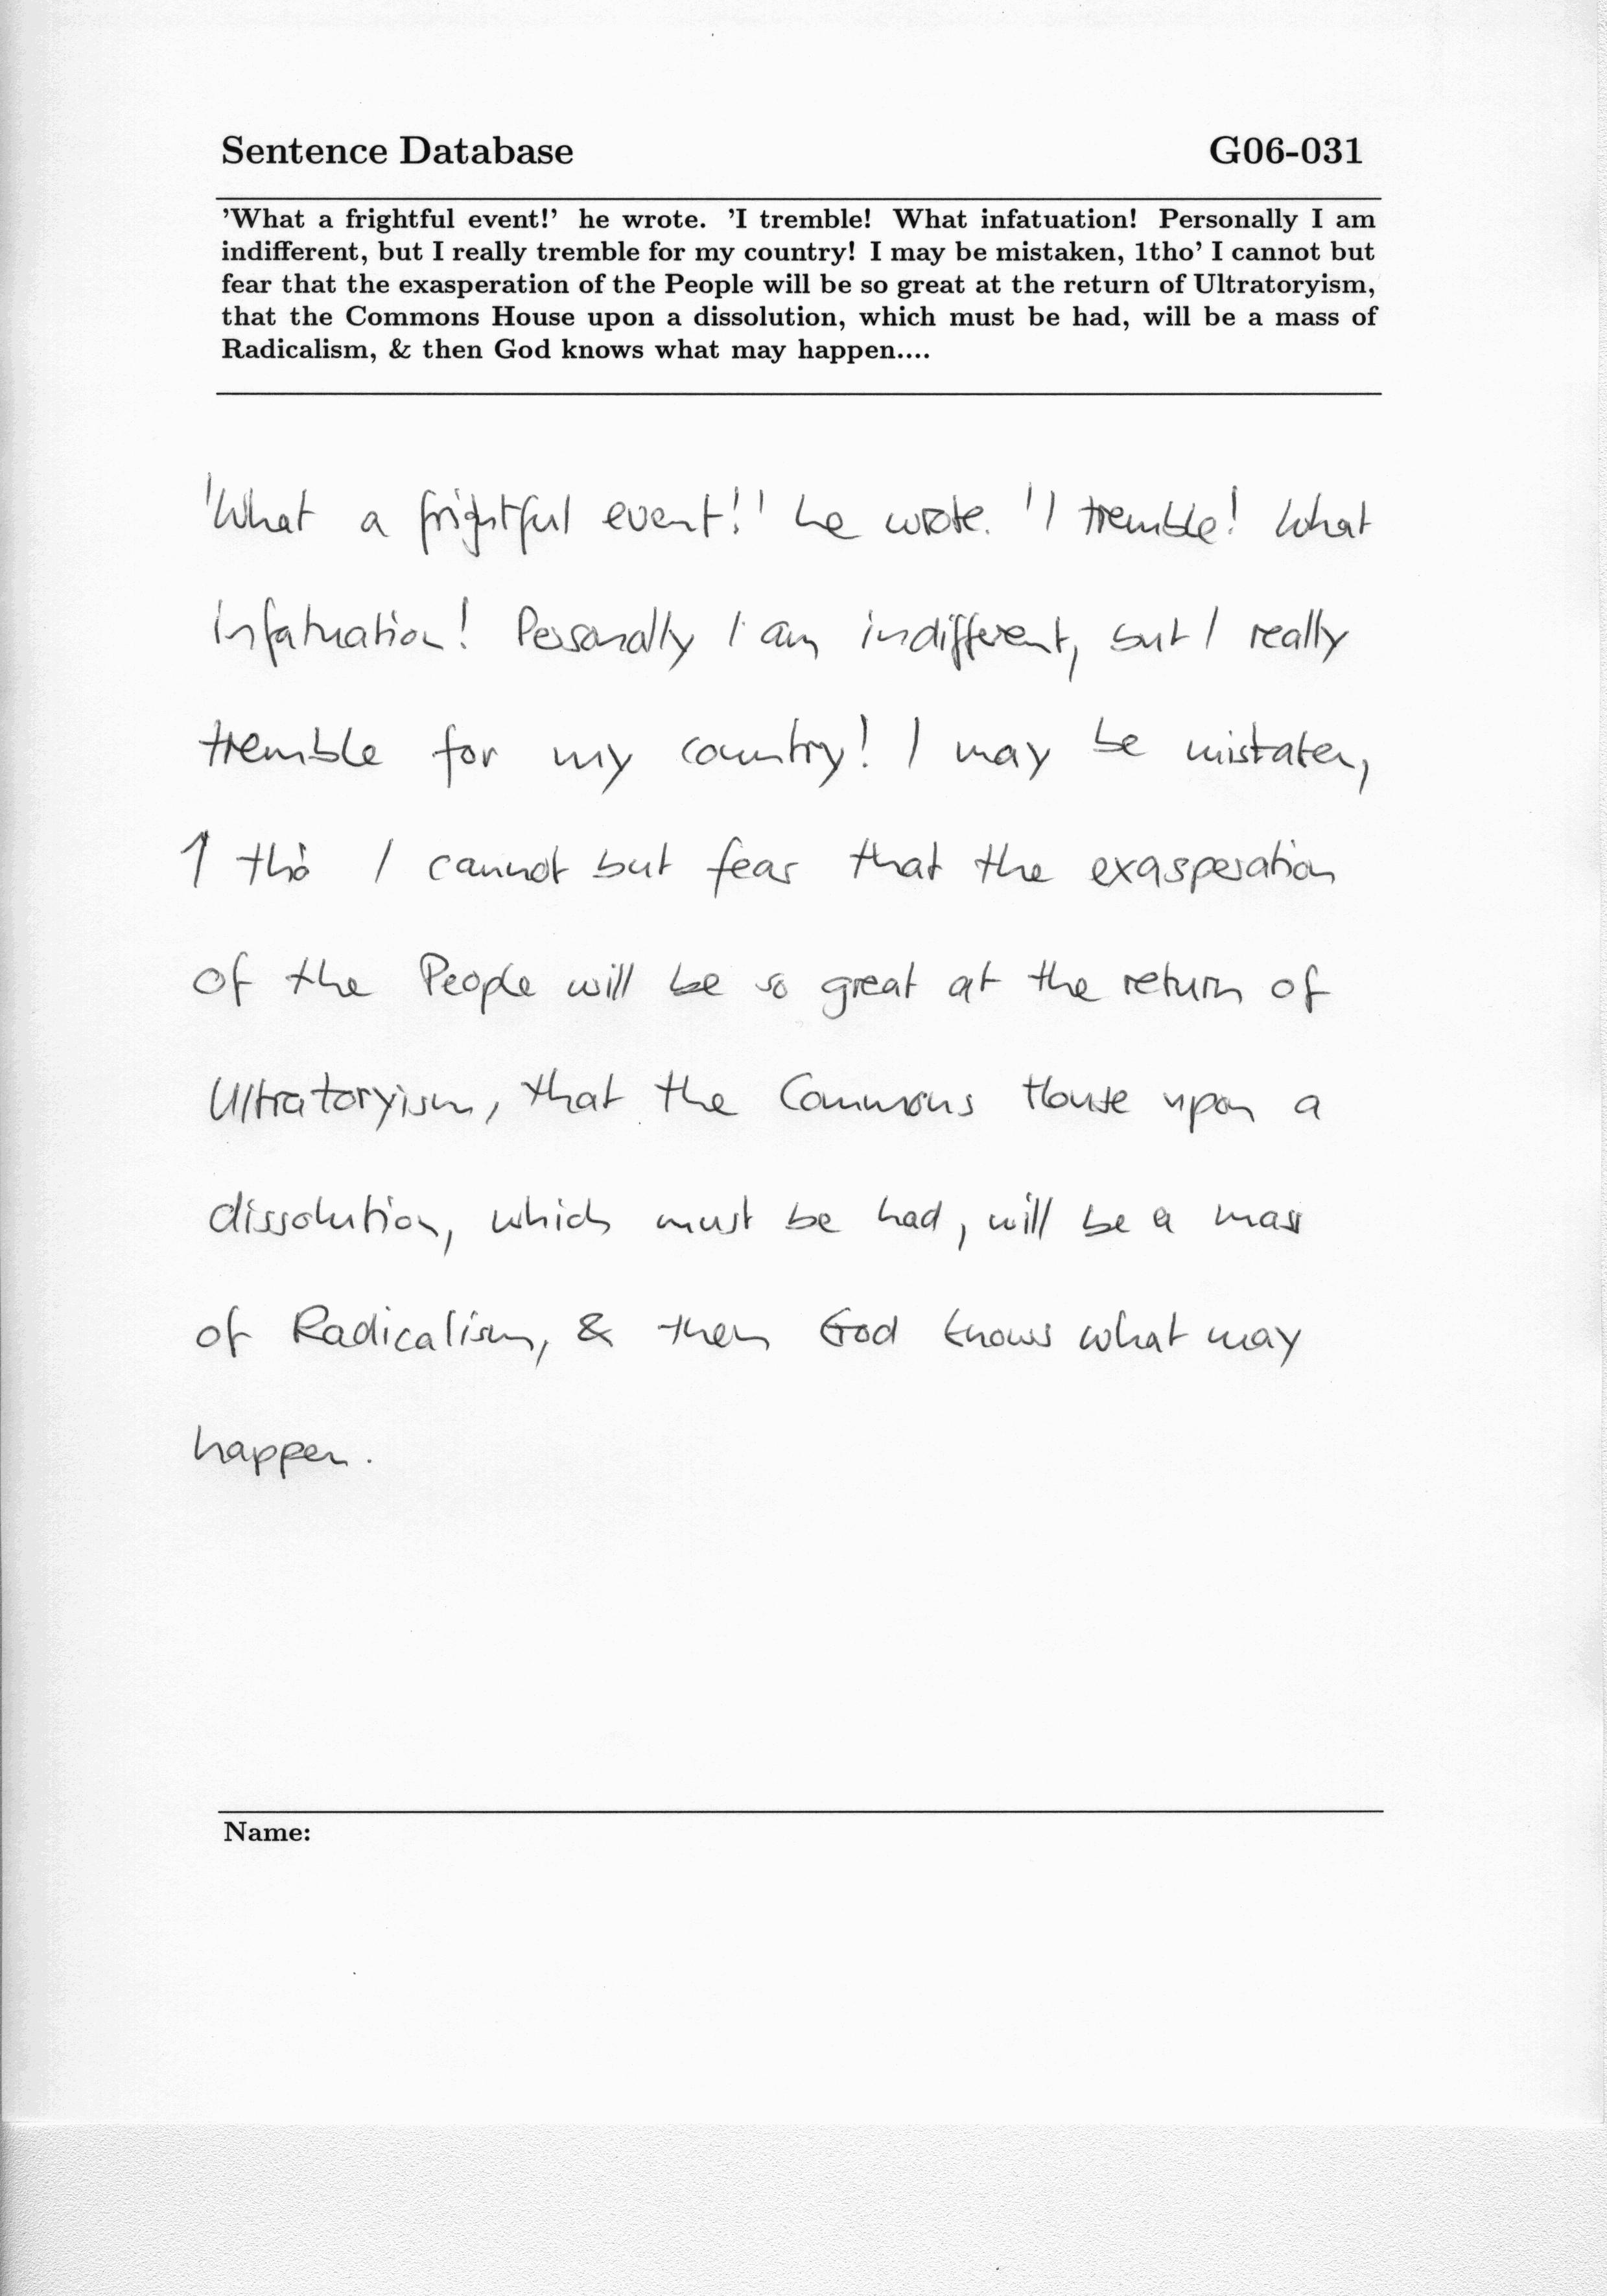 Sentence Database G06-031
'What a frightful event!' he wrote. 'I tremble! What infatuation! Personally I am
indifferent, but I really tremble for my country! I may be mistaken, 1tho' I cannot but
fear that the exasperation of the People will be so great at the return of Ultratoryism,
that the Commons House upon a dissolution, which must be had, will be a mass of
Radicalism, & then God knows what may happen....
'What a frightful event!' he wrote. 'I tremble! What
infatuation! Personally I am indifferent, but I really
tremble for my country! I may be mistaken,
1 tho' I cannot but fear that the exasperation
of the People will be so great at the return of
Ultratoryism, that the Commons House upon a
dissolution, which must be had, will be a mass
of Radicalism, & then God knows what may
happen.
Name: